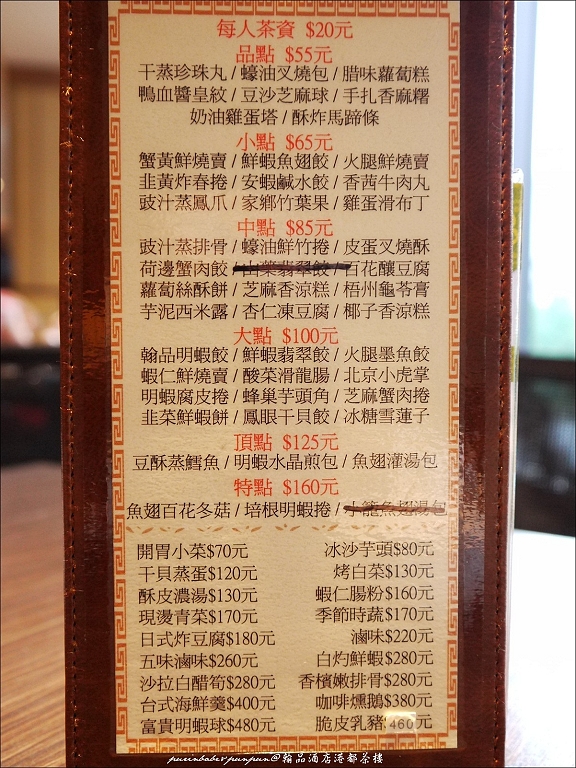 每人茶資 $20元
品點 $55元
干蒸珍珠丸 / 蠔油叉燒包 / 腊味蘿蔔糕
鴨血醬皇紋 / 豆沙芝麻球 / 手扎香麻糬
奶油雞蛋塔 / 酥炸馬蹄條
小點 $65元
蟹黃鮮燒賣 / 鮮蝦魚翅餃 / 火腿鮮燒賣
韭黃炸春捲 / 安蝦鹹水餃 / 香茜牛肉丸
豉汁蒸鳳爪 / 家鄉竹葉果 / 雞蛋滑布丁
中點 $85元
豉汁蒸排骨 / 蠔油鮮竹捲 / 皮蛋叉燒酥
荷邊蟹肉餃 / 山藥翡翠餃 / 百花釀豆腐
蘿蔔絲酥餅 / 芝麻香涼糕 / 梧州龜苓膏
芋泥西米露 / 杏仁凍豆腐 / 椰子香涼糕
大點 $100元
翰品明蝦餃 / 鮮蝦翡翠餃 / 火腿墨魚餃
蝦仁鮮燒賣 / 酸菜滑龍腸 / 北京小虎掌
明蝦腐皮捲 / 蜂巢芋頭角 / 芝麻蟹肉捲
韭菜鮮蝦餅 / 鳳眼干貝餃 / 冰糖雪蓮子
頂點 $125元
豆酥蒸鱈魚 / 明蝦水晶煎包 / 魚翅灌湯包
特點 $160元
魚翅百花冬菇 / 培根明蝦捲 / 小籠魚翅湯包
開胃小菜$70元 冰沙芋頭$80元
干貝蒸蛋$120元 烤白菜$130元
酥皮濃湯$130元 蝦仁腸粉$160元
現燙青菜$170元 季節時蔬$170元
日式炸豆腐$180元 滷味$220元
五味滷味$260元 白灼鮮蝦$280元
沙拉白醋筍$280元 香檳嫩排骨$280元
台式海鮮羹$400元 咖啡燻鵝$380元
富貴明蝦球$480元 脆皮乳豬 460元
puccababer punpun@翰品酒店港都茶樓